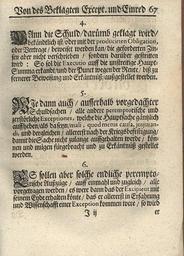 Von des Beklagten Except. und Einred 67
4.
Wann die Schuld / darumb geklagt wird /
bekäntlich ist oder mit der producirten Obligation,
oder Vertrags / beweiset worden
aber nicht verschrieben / sondern darüber
wird: So sol die Execution auff die unstreitige Haupt-
Summa erkant / und der Punct wegen der
fernerer Beweisung und Erkäntnüß / außgestellet werden.
5.
Wie dann auch / ausserhalb vorgedachter
Schuldsachen / alle andere peremptorische und
zerstörliche Exceptiones, welche die Hauptsache gäntzlich
auffheben / als da seyn / mali, quod metus causa,
und dergleichen / allererst nach der Kriegsbefestigung /
damit die Sache nicht auffgehalten werde /
und mügen fürgebracht und zu Erkäntnüß gestellet
werden.
6.
Es sollen aber solche endliche perempto-
rische Außzüge / auff einmahl und zugleich /
alle vorgetragen werden / es were dann das der Excipient mit
seinem Eyde erhalten köndte / das er allererst in Erfahrung
und Wissenschafft einer Exception kommen were / so wirdt
J ij
er